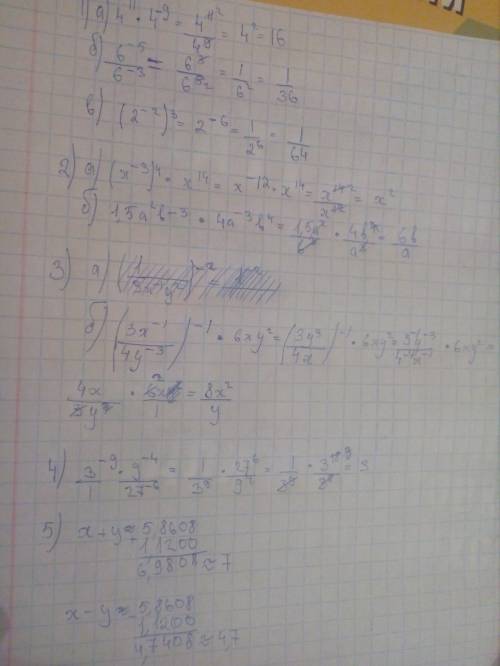 1) а) 4¹¹ · 4⁻⁹ = 4¹¹/4⁹ = 4² = 16
б) 6⁻⁵/6⁻³ = 6³/6⁵ = 1/6² = 1/36
в) (2⁻²)³ = 2⁻⁶ = 1/2⁶ = 1/64
2) а) (x⁻³)⁴ · x¹⁴ = x⁻¹² · x¹⁴ = x¹⁴/x¹² = x²
б) 1,5a²b⁻³ · 4a⁻³b⁴ = 1,5a²/b³ · 4b⁴/a³ = 6b/a
3) а)
б) (3x⁻¹/4y⁻³)⁻¹ · 6xy² = (3y³/4x)⁻¹ · 6xy² = 3⁻¹y⁻³/4⁻¹x⁻¹ · 6xy² =
4x/3y³ · 6xy²/1 = 8x²/y
4) 3⁻⁹/1 · 9⁻⁴/27⁻⁶ = 1/3⁹ · 27⁶/9⁴ = 1/3⁹ · 3¹⁸/3⁸ = 3
5) x + y ≈ 5,8608
+ 1,1200
6,9808 ≈ 7
x - y ≈ 5,8608
- 1,1200
4,7408 ≈ 4,7